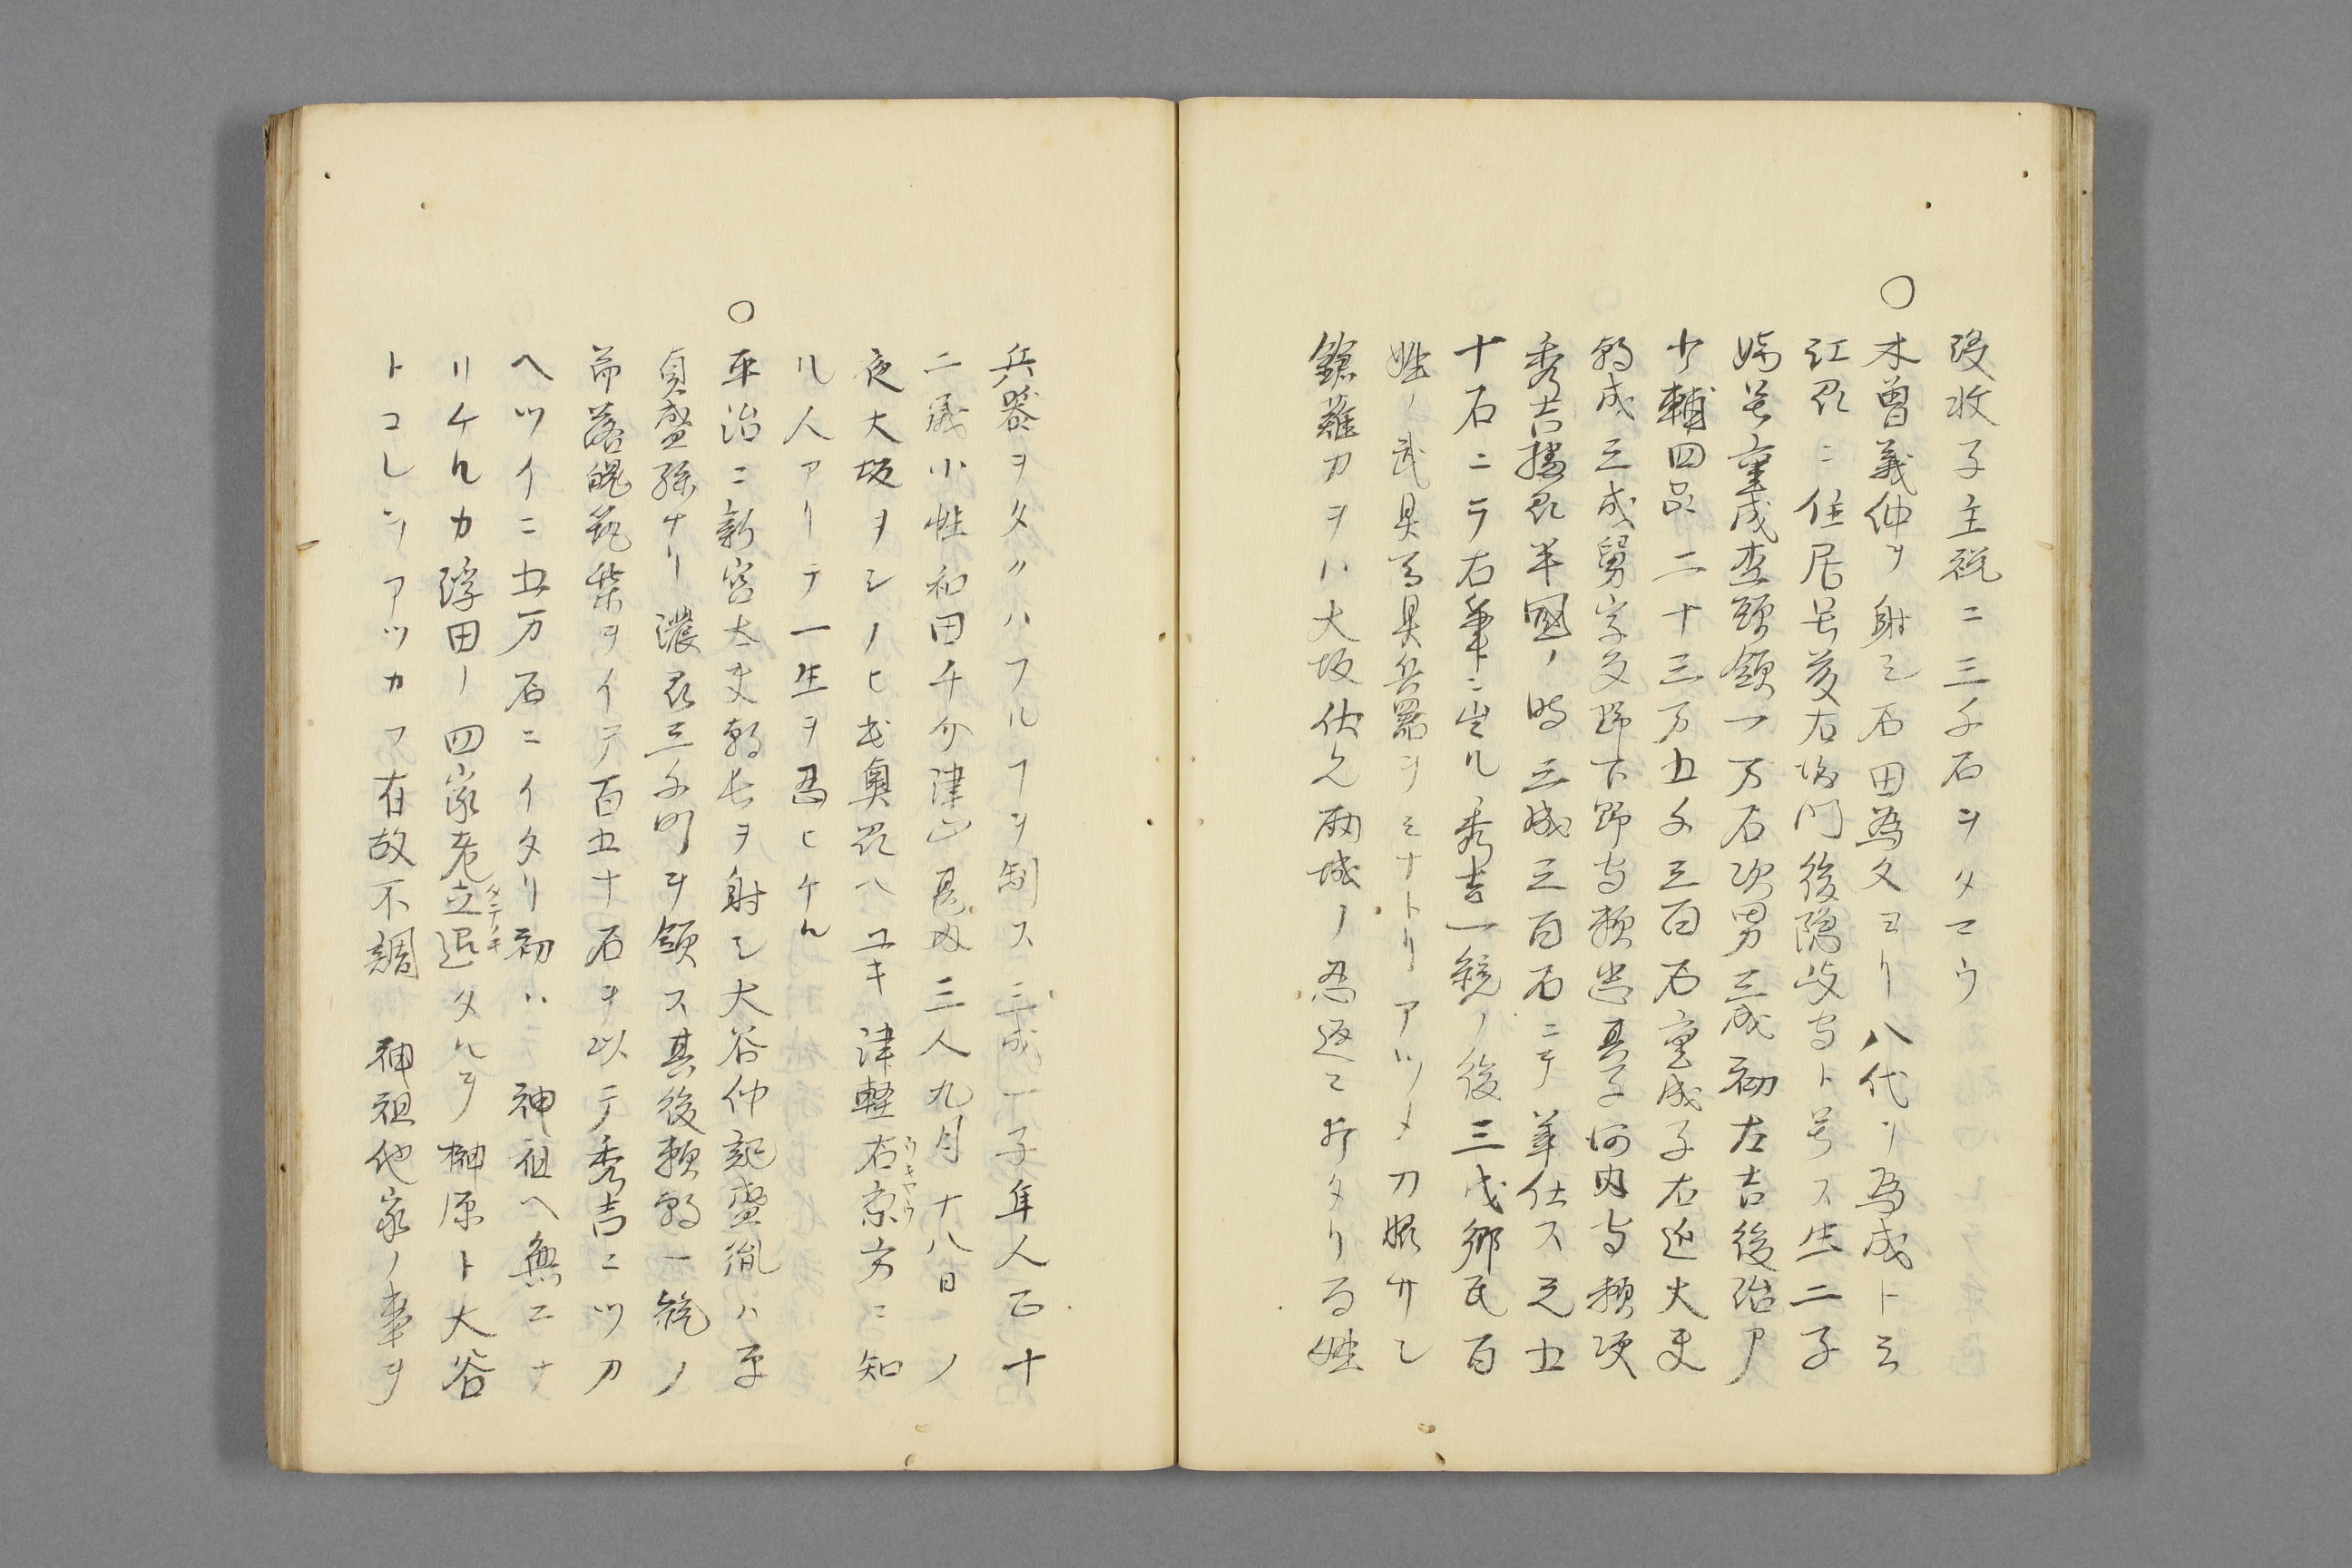 段牧子主税ニ三千石ヲタマウ
○木曽義仲ヲ射シ石田為久ヨリ八代ヲ為成トシ
江州ニ住居号藤右衛門後隠岐守ト号ス生二子
嫡号重成杢頭領一万石次男三成初左吉後治ア
少輔四品二十三万五千三百石重成子右近大夫
朝成三成舅字多野下野守頼忠其子河内守頼次
秀吉播州半國ノ時三成三百石ニテ奉仕ス是五
十石ニテ右筆ト出ル秀吉一統ノ後三成郷民百
姓ノ武具馬具兵器ヲミナトリアツメ刀脇サシ
鎗薙刀ヲハ大坂伏見両城ノ忍返ニ打タリ百姓
兵器ヲタクハフルフヲ制ス三成一子隼人正十
二歳小性和田千介津山甚内三人九月十八日ノ
夜大坂ヲシノヒ出奥州ヘユキ津軽右京方ニ知
ウキヤウ
ル人アリテ一生ヲ忍ヒケル
○平治ニ新宮太夫朝長ヲ射シ大谷仲記盛胤ハ平
貞盛孫ナリ濃州三千町ヲ領ス其後頼朝一統ノ
節落魄筑紫ヲイテ百五十石ヲ以テ秀吉ニツカ
ヘツイニ五万石ニイタリ初ハ　神祖ヘ無二ナ
リケルカ浮田ノ四家老立退タルヲ榊原ト大谷
タチノキ
トコレヲアツカフ有故不調　神祖他家ノ事ヲ